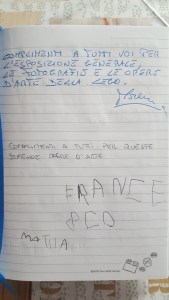 COMPLIMENTI A TUTTI VOI PER
L'ESPOSIZIONE GENERALE,
LE FOTOGRAFIE E LE OPERE
D'ARTE DELLA LEGO.
COMPLIMENTI A TUTTI PER QUESTE
OPERE D'ARTE
FRANCE
SCO
MATTIA